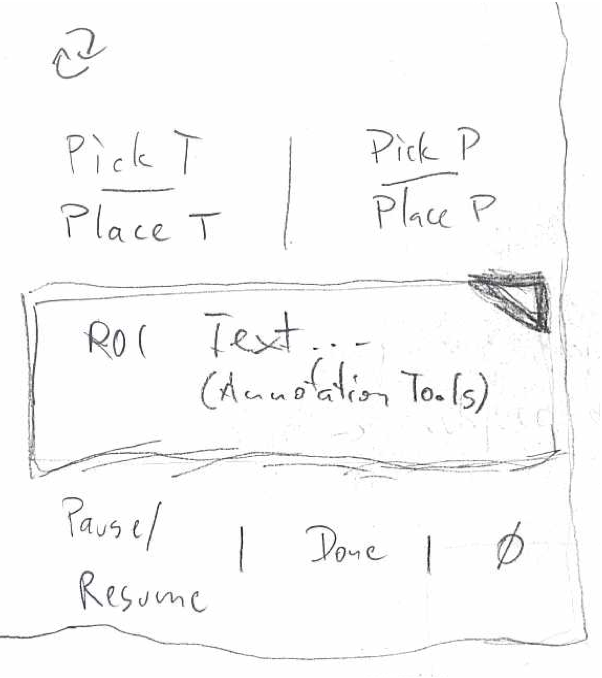 Pick T | Pick P
Place T Place P
ROI Text...
(Annotation Tools)
Pause/
Resume | Done | Ø